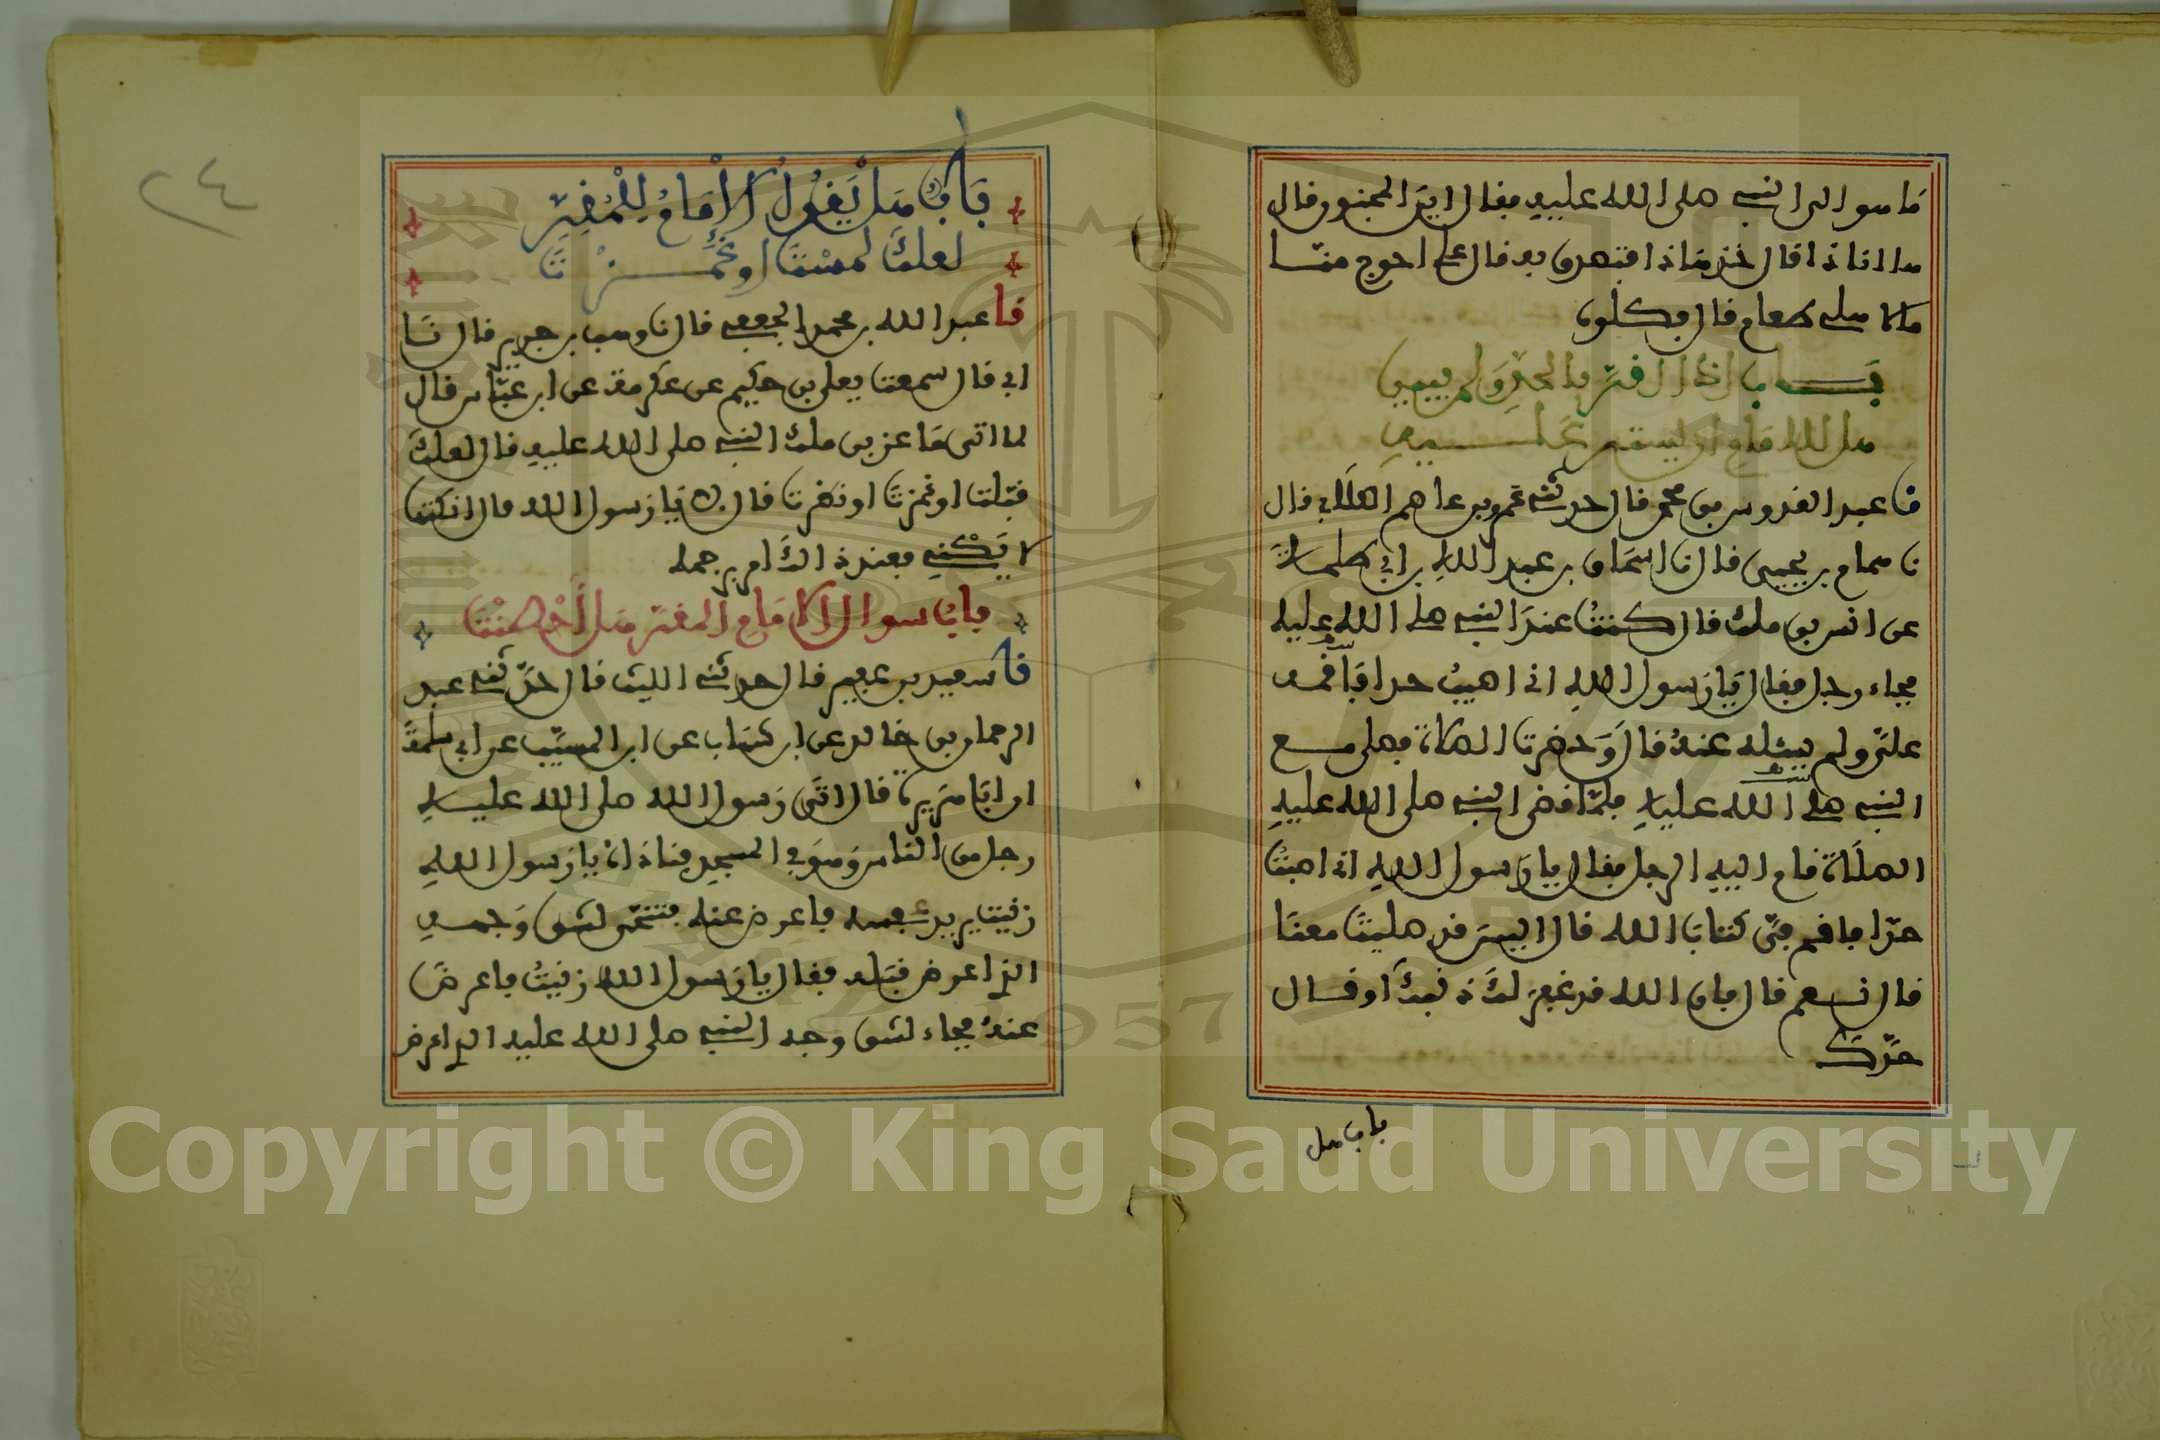 ما هو الى النبي صلى الله عليه فقال اين المحترق قال
ها انا ذا قال خذ هذا فتصدق به قال على احوج منا
ما لاهلي طعام قال فكلوه
باب اذا اقر بالحد ولم يبين
هل للامام ان يستر عليه
نا عبد القدوس بن محمد قال حدثني عمرو بن عاصم الكلابي قال
نا همام بن يحيى قال نا اسحاق بن عبد الله بن ابي طلحة
عن انس بن ملك قال كنت عند النبي صلى الله عليه
فجاءه رجل فقال يا رسول الله اني اصبت حدا فاقمه
علي ولم يسئله عنه قال وحضرت الصلاة فصلى مع
النبي صلى الله عليه فلما قضى النبي صلى الله عليه
الصلاة قام اليه الرجل فقال يا رسول الله اني اصبت
حدا فاقم في كتاب الله قال اليس قد صليت معنا
قال نعم قال فان الله قد غفر لك ذنبك او قال
حدك
باب هل
٢٤
باب هل يقول الامام للمقر
لعلك لمست او غمزت
نا عبد الله بن محمد الجعفي قال نا وهب بن جرير قال نا
ابي قال سمعت يعلى بن حكيم عن عكرمة عن ابن عباس قال
لما اتى ماعز بن ملك النبي صلى الله عليه قال لعلك
قبلت او غمزت او نظرت قال لا يا رسول الله قال انكتها
لا يكني فعند ذالك امر برجمه
باب سوال الامام المقر هل احصنت
نا سعيد بن عفير قال حدثني الليث قال حدثني عبد
الرحمان بن خالد عن ابن شهاب عن ابن المسيب عن ابي سلمة
ان ابا هريرة قال اتى رسول الله صلى الله عليه
رجل من الناس وهو في المسجد فناداه يا رسول الله
زنيت يريد نفسه فاعرض عنه فتنحى لشق وجهه
الذي اعرض قبله فقال يا رسول الله زنيت فاعرض
عنه فجاء لشق وجه النبي صلى الله عليه الذي اعرض
Copyright © King Saud University
1957